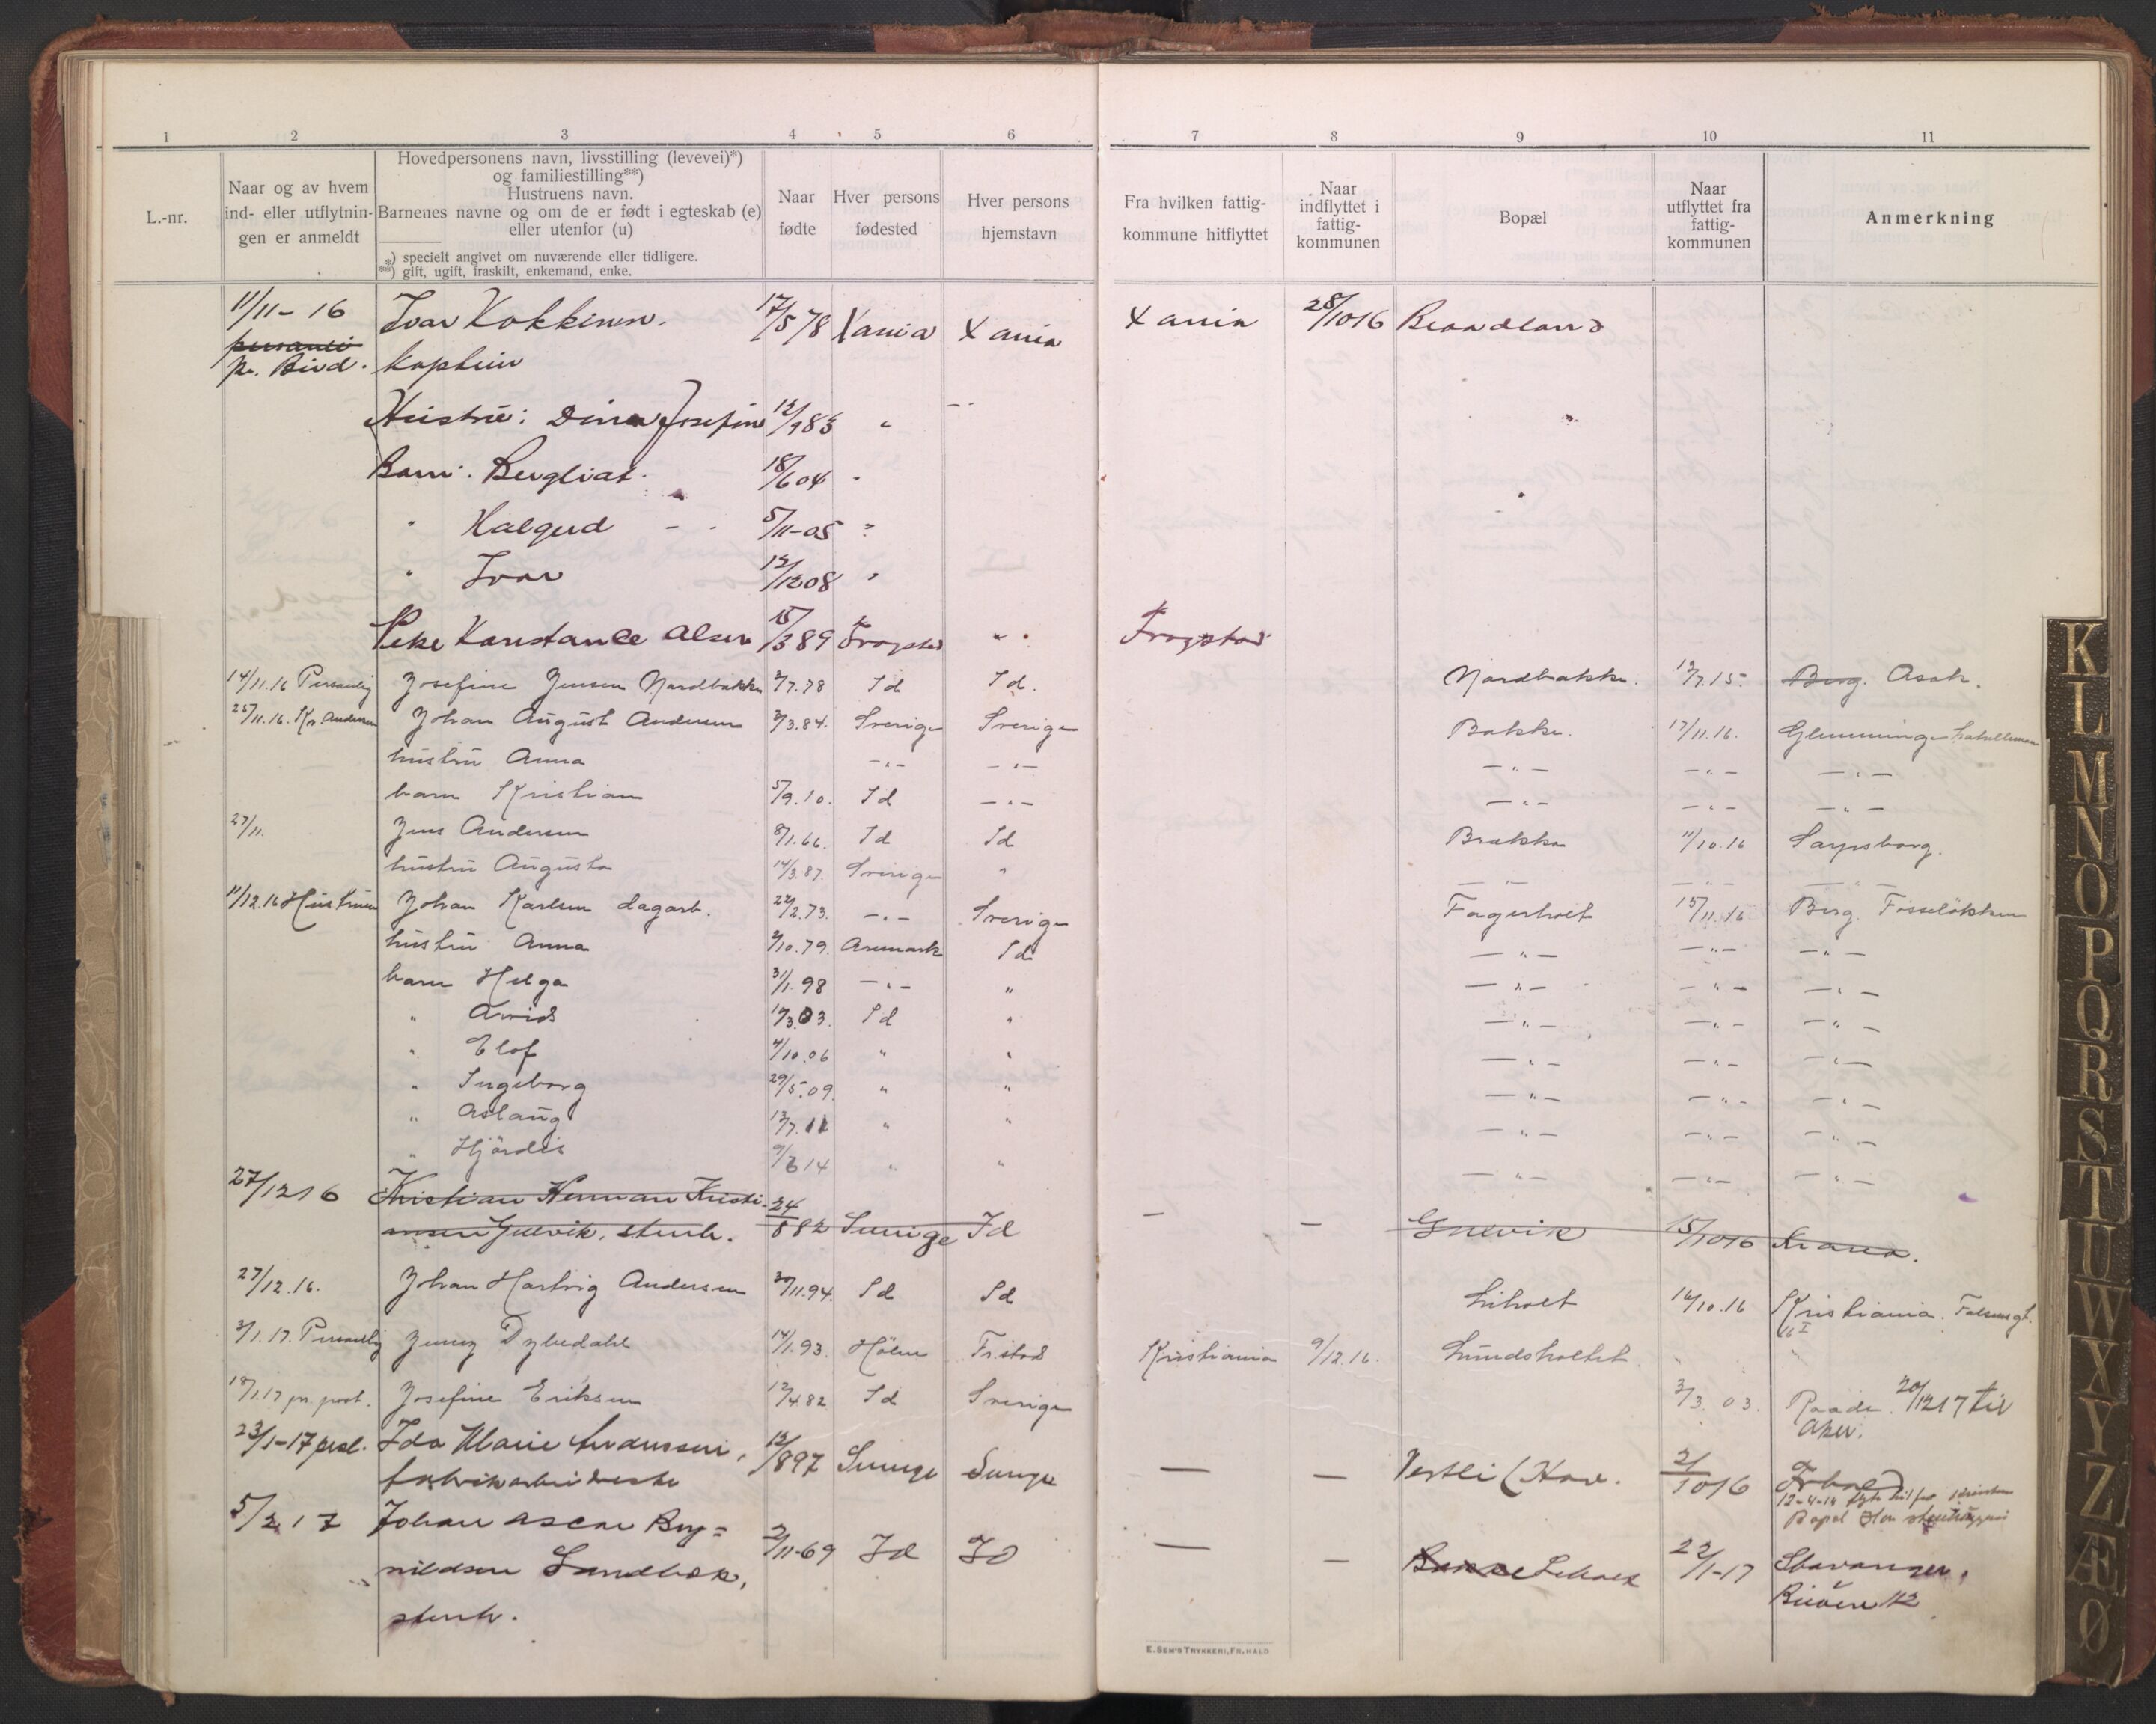 1 2 3 4 5 6 7 8 9 10 11
L.-nr.
Naar og av hvem
ind- eller utflytnin-
gen er anmeldt
Hovedpersonens navn, livsstilling (levevei)*)
og familiestilling**)
Hustruens navn.
Barnenes navne og om de er født i egteskab (e)
eller utenfor (u)
*) specielt angivet om nuværende eller tidligere.
**) gift, ugift, fraskilt, enkemand, enke.
Naar
fødte
Hver persons
fødested
Hver persons
hjemstavn
Fra hvilken fattig-
kommune hitflyttet
Naar
indflyttet i
fattig-
kommunen
Bopæl
Naar
utflyttet fra
fattig-
kommunen
Anmerkning
11/11-16 Ivar Kokkinn. 17/5 78 Xania Xania Xania 28/10 16 Braadland
kaptein
Hustru: Dina Josefine 12/9 83 "
Barn: Bergliot 18/6 04 "
" Halgerd 5/11-05 "
" Ivar 12/12 08 "
Konstance Olsen 15/3 89 Trøgstad " Trøgstad
14/11.16 Personlig Josefine Jensen Nordbakke 2/7.78 Id Id. Nordbakke. 12/7.15. Berg. Asak.
25/11.16. Kr. Andersen Johan August Andersen 2/3.84. Sverige Sverige Bakke. 17/11.16. Glemminge
hustru Anna -"- -"- -"- -"- -"-
barn Kristian 5/9.10. Id -"- -"- -"- -"-
27/11. Jens Andersen 8/1.66. Id Id Brækka 11/10.16 Sarpsborg.
hustru Augusta 14/3.87. Sverige " -"- -"- -"-
11/12.16 Hustruen Johan Karlsen dagarb. 22/2.73. -"- Sverige Fagerholt 15/11.16 Berg Fosseløkken
hustru Anna 2/10.79. Aremark Id -"- -"- -"-
barn Helga 31/1.98 -"- " -"- -"- -"-
" Arvid 19/3.03. Id " -"- -"- -"-
" Elof 4/10.06 " " -"- -"- -"-
" Ingeborg 29/5.09. " " -"- -"- -"-
" Aslaug 13/7.11 " " -"- -"- -"-
" Hjørdis 9/6 14 " " -"- -"- -"-
27/12 16 Kristian Herman Kristi-
ansen Gulvik, stenh. 24/8 82 Sverige Id — — Gulvik 15/10 16
27/12.16. Johan Hartvig Andersen 30/11.94. Id Id Liholt 16/10.16 Kristiania.
2/1.17. Personlig Jenny Dybedahl 14/1.93. Fr.stad Kristiania 9/12.16. Lundsholtet
18/1.17 pr. post. Josefine Eriksen 12/4 82 Id Sverige 3/3. 03. Raade. 20/12 17 til
Aker.
23/1-17 Ida Marie Andersen, 12/8 97 Sverige Sverige — — Vestli 21/10 16
fabrikarbeiderske
5/2 17 Johan Oscar Bry=
nildsen Sandbæk, 2/11-69 Id Id — — Liholt 22/1-17 Stavanger.
stenh.
E. SEM'S TRYKKERI, FR.HALD
K
L
M
N
O
P
Q
R
S
T
U
W
X
Y
Z
Æ
Ø